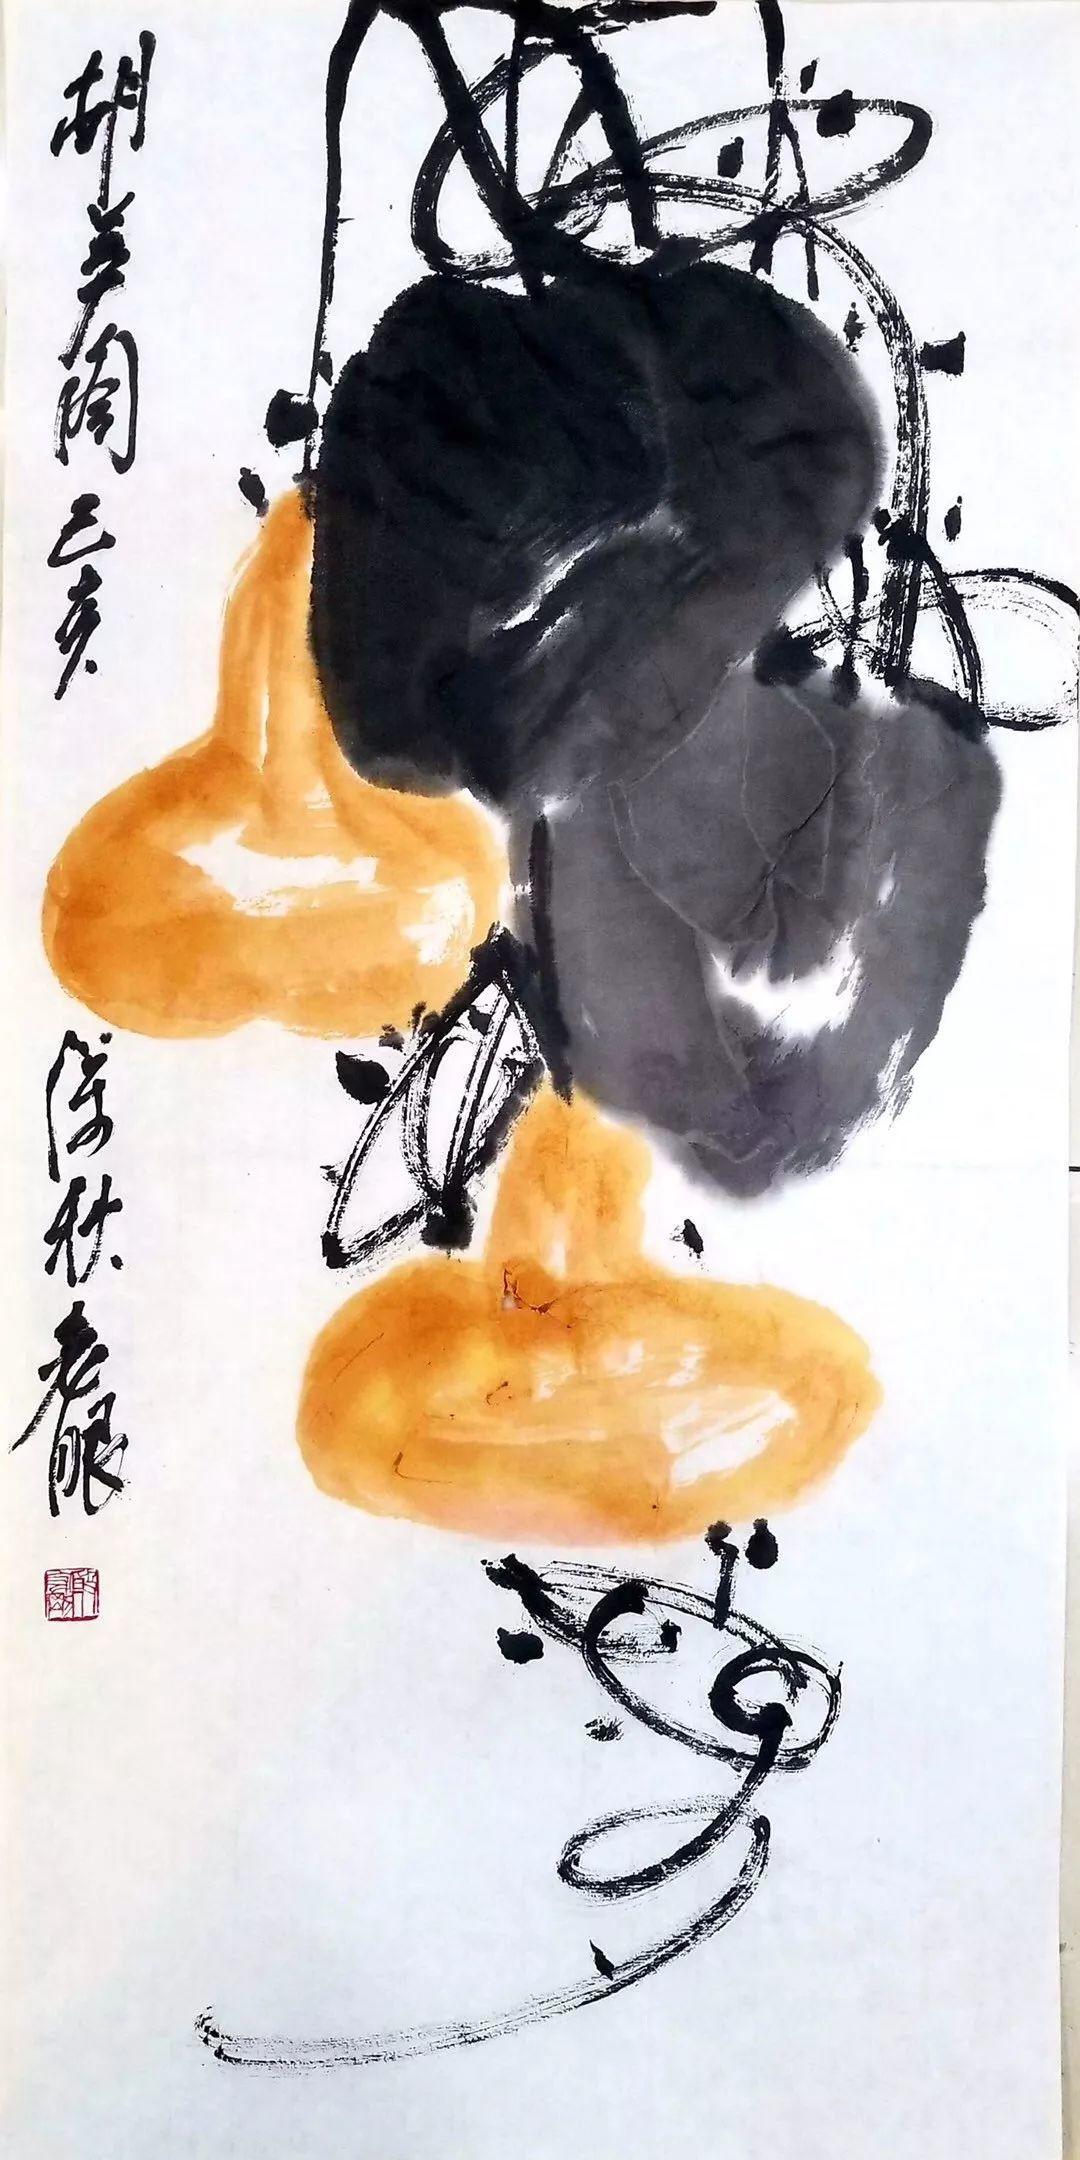 胡芦图己亥
深秋老眼